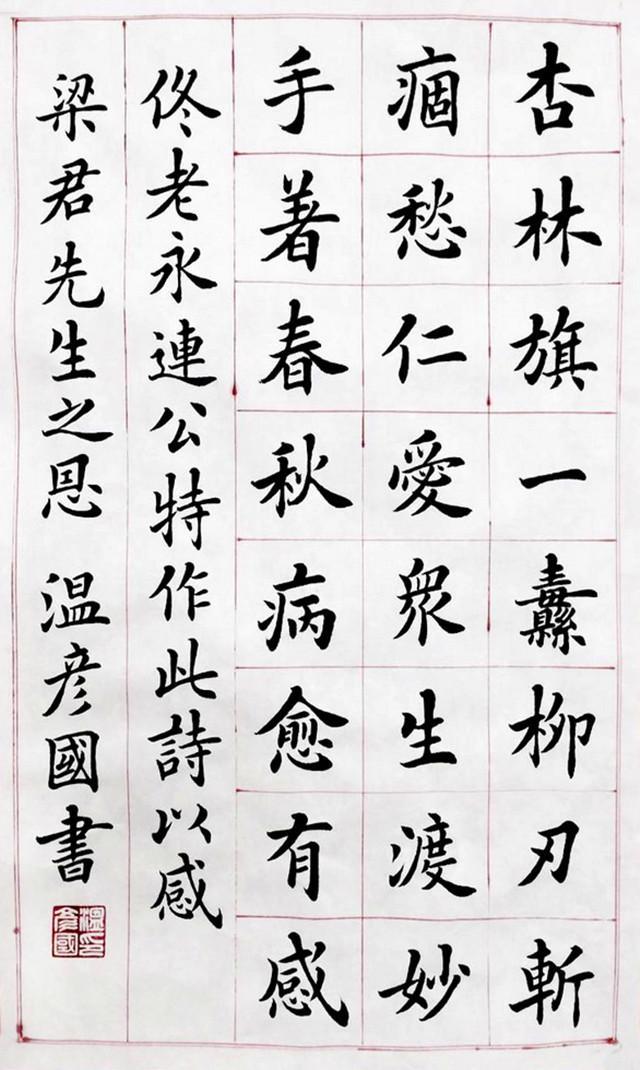 杏林旗一纛柳刃斬
痼愁仁愛眾生渡妙
手着春秋病愈有感
佟老永連公特作此詩以感
梁君先生之恩 温彦國書
温彦國印